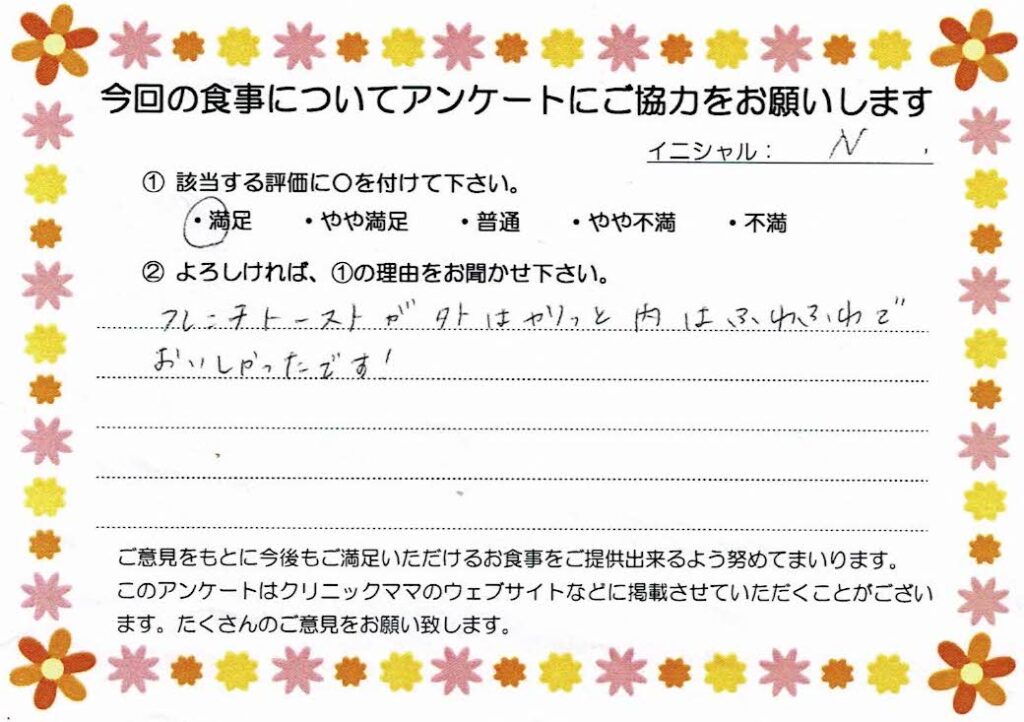 今回の食事についてアンケートにご協力をお願いします
イニシャル： N .
① 該当する評価に〇を付けて下さい。
・満足 ・やや満足 ・普通 ・やや不満 ・不満
② よろしければ、①の理由をお聞かせ下さい。
フレンチトーストが外はカリっと内はふわふわで
おいしかったです！
ご意見をもとに今後もご満足いただけるお食事をご提供出来るよう努めてまいります。
このアンケートはクリニックママのウェブサイトなどに掲載させていただくことがござい
ます。たくさんのご意見をお願い致します。